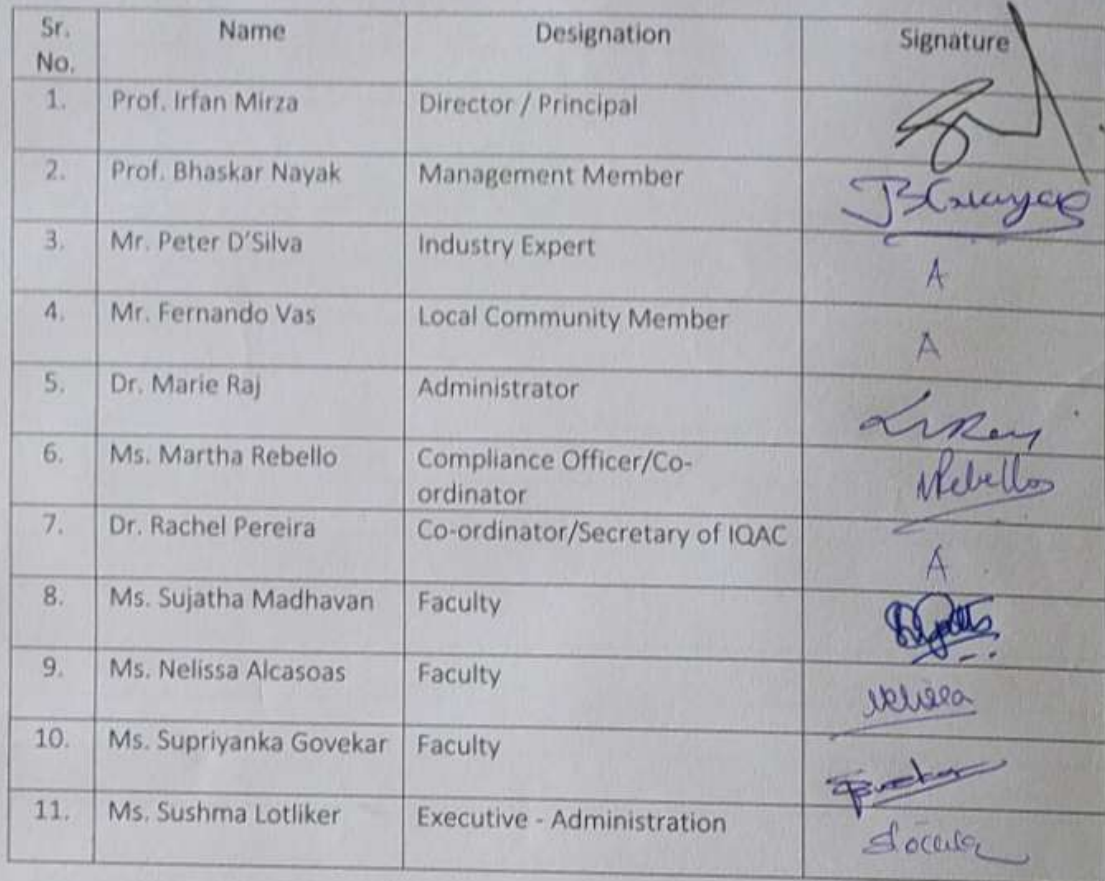 Sr. No. Name Designation Signature
1. Prof. Irfan Mirza Director / Principal
2. Prof. Bhaskar Nayak Management Member
3. Mr. Peter D'Silva Industry Expert A
4. Mr. Fernando Vas Local Community Member A
5. Dr. Marie Raj Administrator
6. Ms. Martha Rebello Compliance Officer/Co-
ordinator MRebello
7. Dr. Rachel Pereira Co-ordinator/Secretary of IQAC A
8. Ms. Sujatha Madhavan Faculty
9. Ms. Nelissa Alcasoas Faculty Nelissa
10. Ms. Supriyanka Govekar Faculty
11. Ms. Sushma Lotliker Executive - Administration